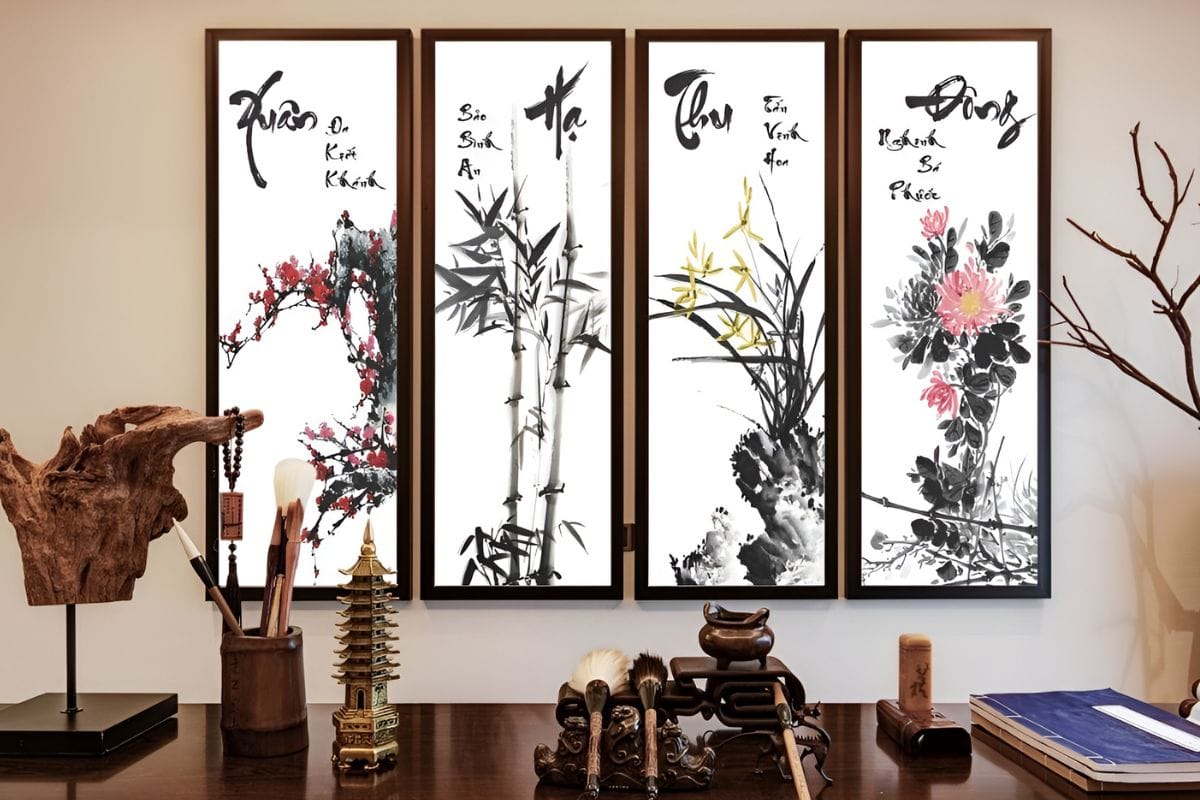 Xuân
Đa
Kiết
Khánh
Hạ
Bảo
Bình
An
Thu
Tấn
Vinh
Hoa
Đông
Nghênh
Bá
Phước